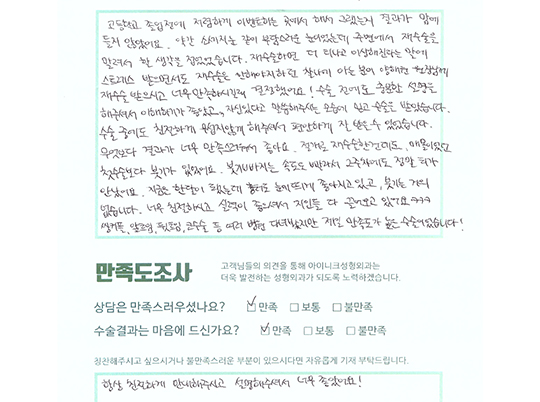 고등학교 졸업전에 저렴하게 이벤트하는 곳에서 해서 그랬는지 결과가 맘에
들지 않았어요. 약간 소세지눈 같이 부담스러운 눈이었는데, 주변에서 재수술을
말려서 한 생각을 접었었습니다. 재수술하면 더 티나고 이상해진다는 말에
스트레스 받으면서도 재수술은 안해야지하던 찰나에 아는 분이
재수술 받으시고 너무 만족하시길래 결정했어요! 수술 전에도 충분한 설명을
해주셔서 이해하기가 좋았고, 자신있다고 말씀해주시는 모습에 믿고 수술을 받았습니다.
수술 중에도 친절하게 무섭지않게 해주셔서 편안하게 잘 받을 수 있었습니다.
무엇보다 결과가 너무 만족스러워서 좋아요. 절개로 재수술한건데도, 매몰이었던
첫수술보다 붓기가 없었어요. 붓기빠지는 속도도 빨라서 2주차에도 정말 티가
안났어요. 지금은 한달이 됐는데 흉터도 눈에띄게 좋아지고 있고, 붓기는 거의
없습니다. 너무 친절하시고 실력이 좋으셔서 지인들 다 끌어오고 있어요 ㅋㅋㅋ
쌍커풀, 앞트임, 뒤트임, 코수술 등 여러 병원 다녀봤지만 제일 만족도가 높은 수술이었습니다!
만족도조사
고객님들의 의견을 통해 아이니크성형외과는
더욱 발전하는 성형외과가 되도록 노력하겠습니다.
상담은 만족스러우셨나요? ☑ 만족 □ 보통 □ 불만족
수술결과는 마음에 드신가요? ☑ 만족 □ 보통 □ 불만족
칭찬해주시고 싶으시거나 불만족스러운 부분이 있으시다면 자유롭게 기재 부탁드립니다.
항상 친절하게 안내해주시고 설명해주셔서 너무 좋았어요!